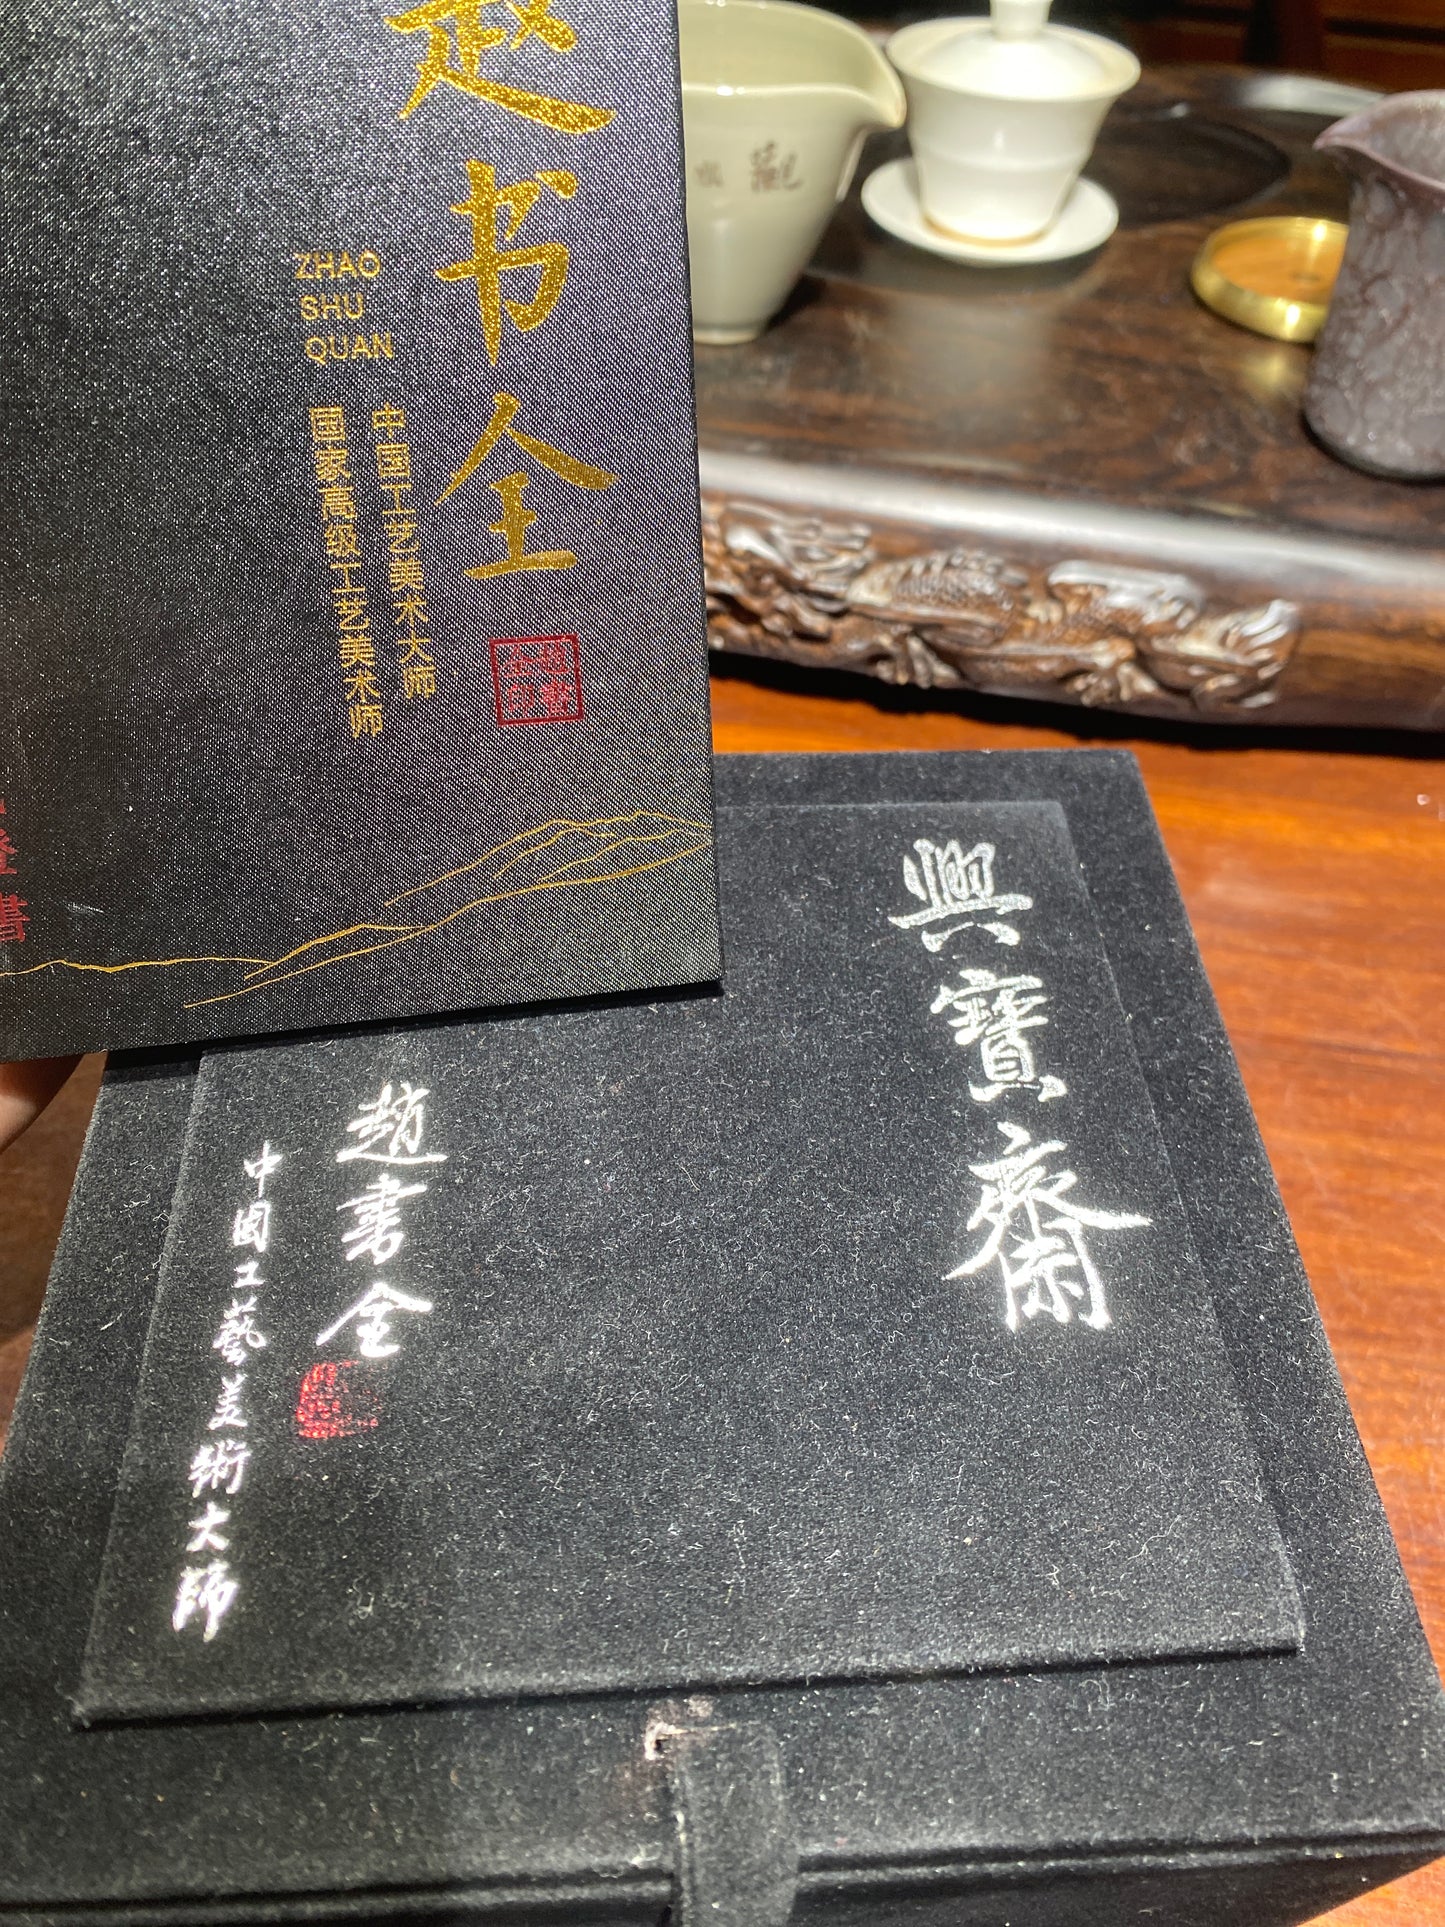 赵书全
ZHAO
SHU
QUAN
中国工艺美术大师
国家高级工艺美术师
趙書全印
證書
觀
興寶齋
趙書全
中國工藝美術大師